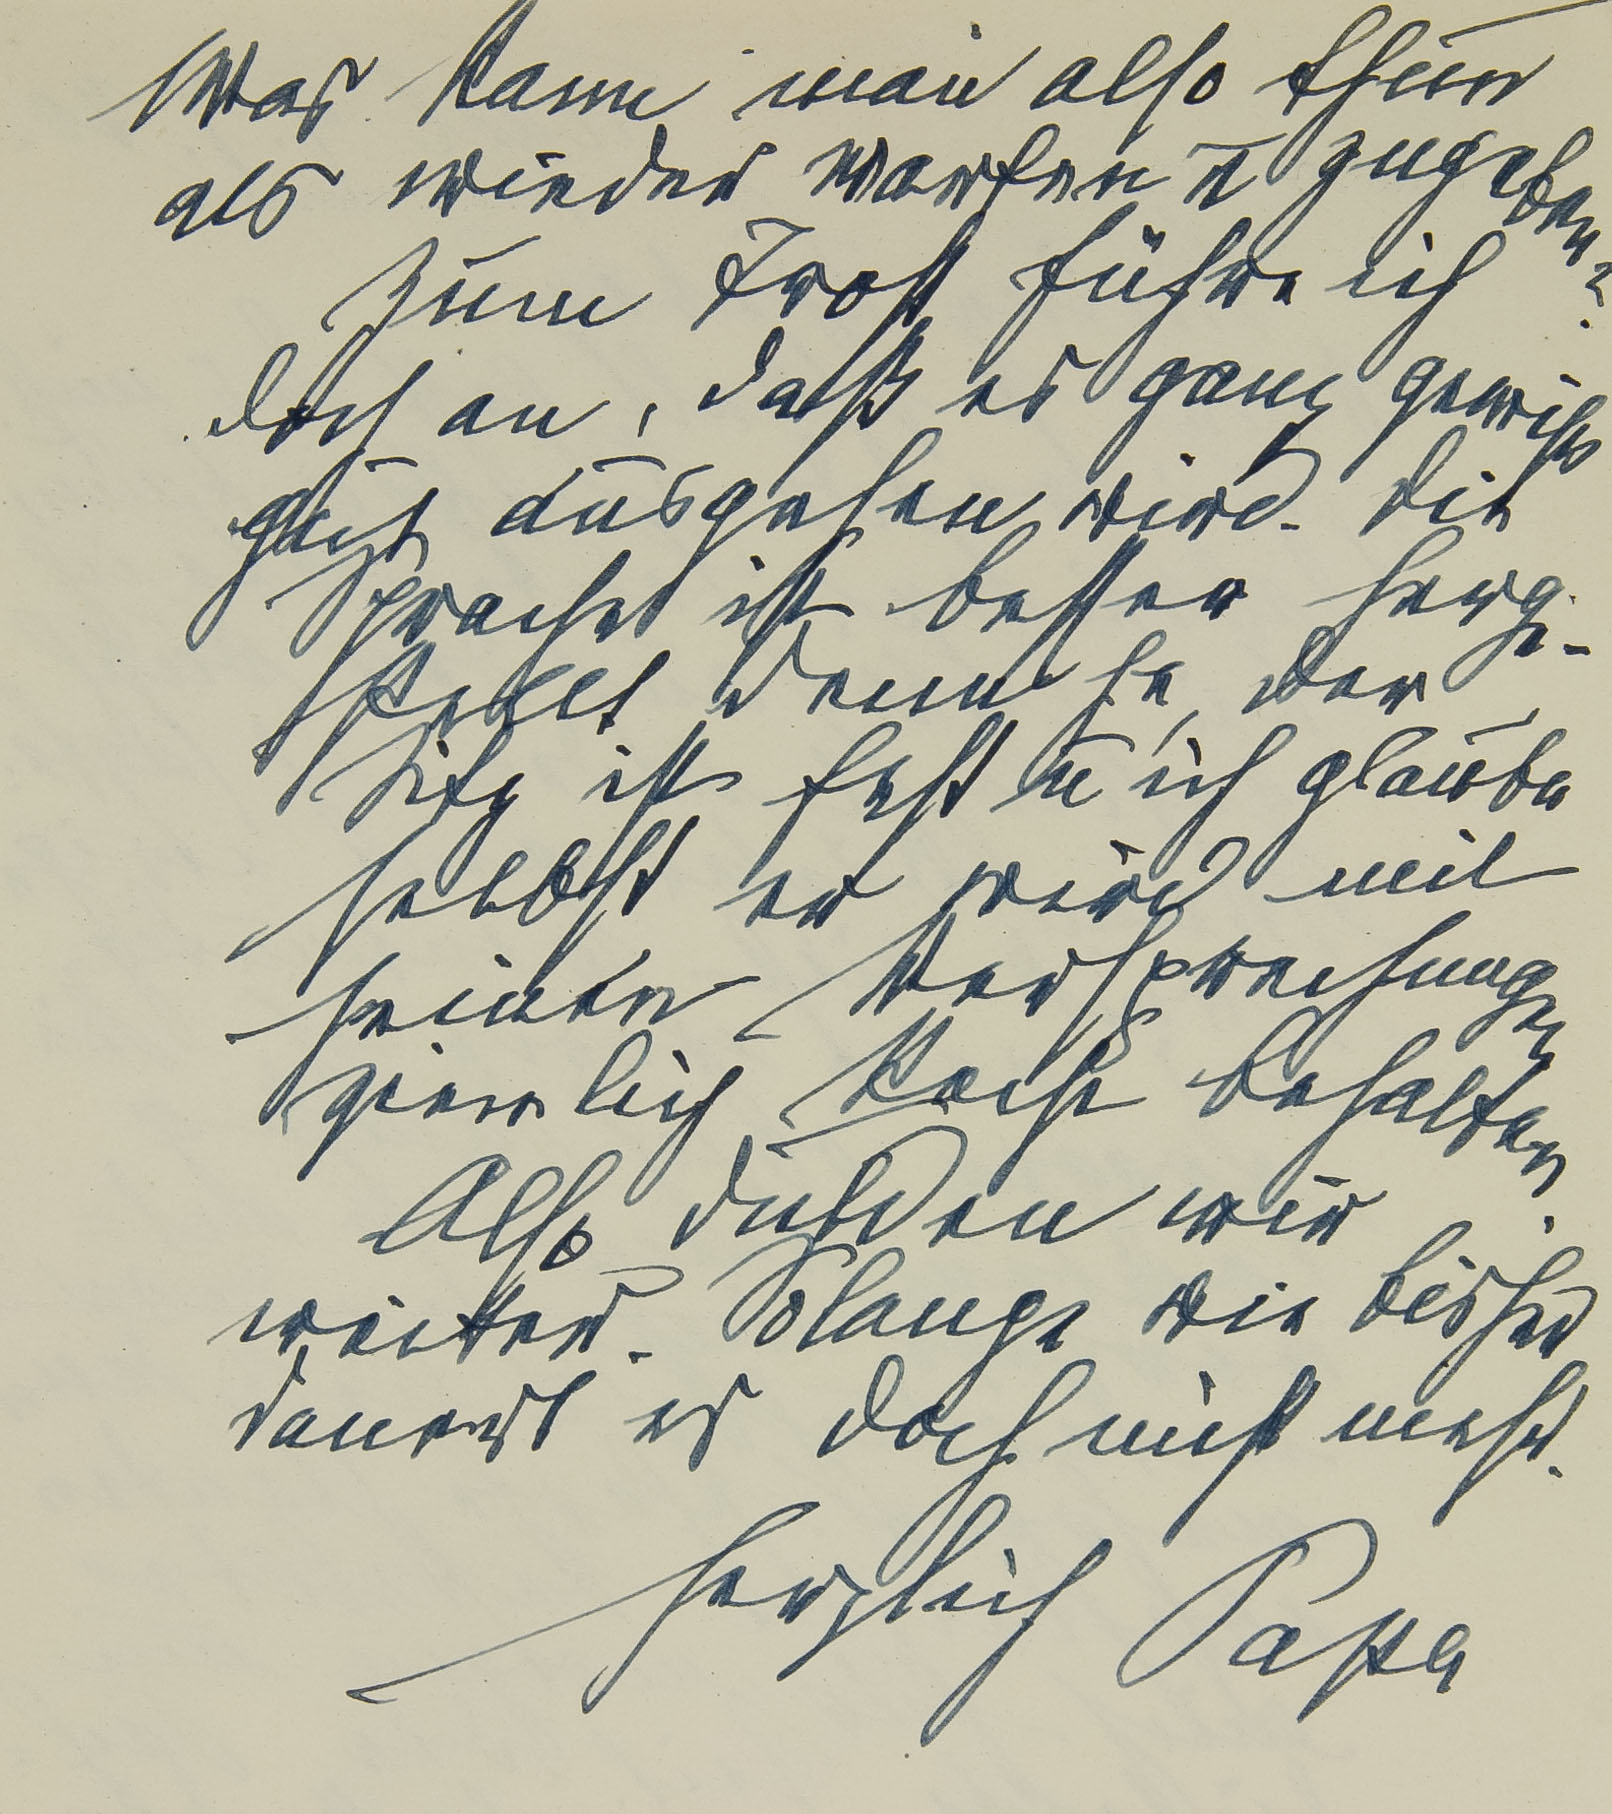 Was kann man also thun
als wieder warten u zugeben?
Zum Trost führe ich
doch an, daß es ganz gewiß
gut ausgehen wird. Die
Sprache ist besser herge-
stellt denn je, der
Sitz ist fest u ich glaube
selbst er wird mit
seinen Versprechungen
ziemlich Recht behalten.
Also dulden wir
weiter. Solange wie bisher
dauert es doch nicht mehr.
Herzlich Papa